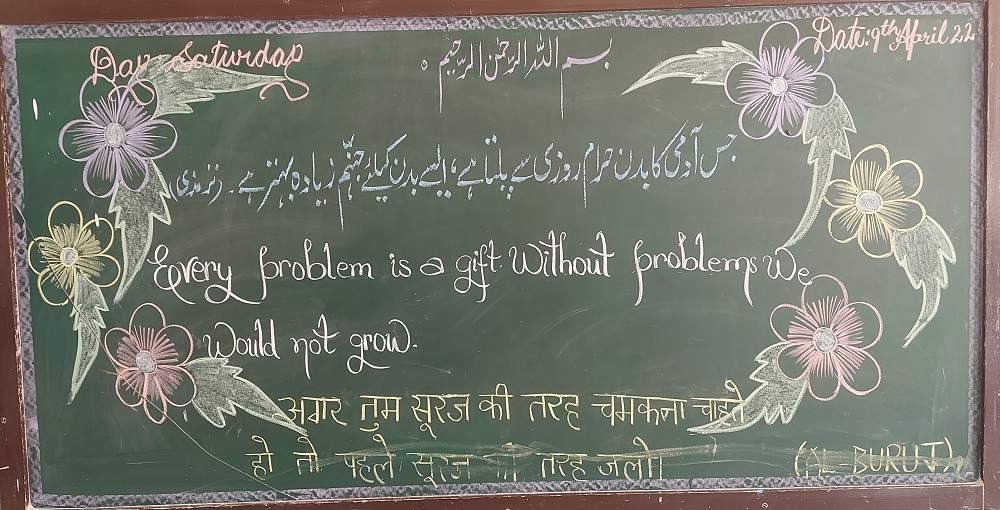 Day: Saturday
بسم اللہ الرحمٰن الرحیم ۰
Date: 9th April 22
جس آدمی کا بدن حرام روزی سے پلتا ہے، ایسے بدن کیلئے جہنّم زیادہ بہتر ہے۔ (ترمذی)
Every problem is a gift. Without problems We
Would not grow.
अगर तुम सूरज की तरह चमकना चाहते
हो तो पहले सूरज की तरह जलो।
(AL-BURUJ)